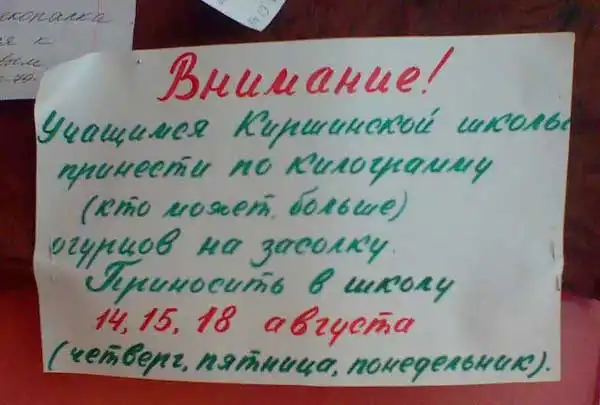 Внимание!
Учащимся Киршинской школы
принести по килограмму
(кто может, больше)
огурцов на засолку.
Приносить в школу
14, 15, 18 августа
(четверг, пятница, понедельник).